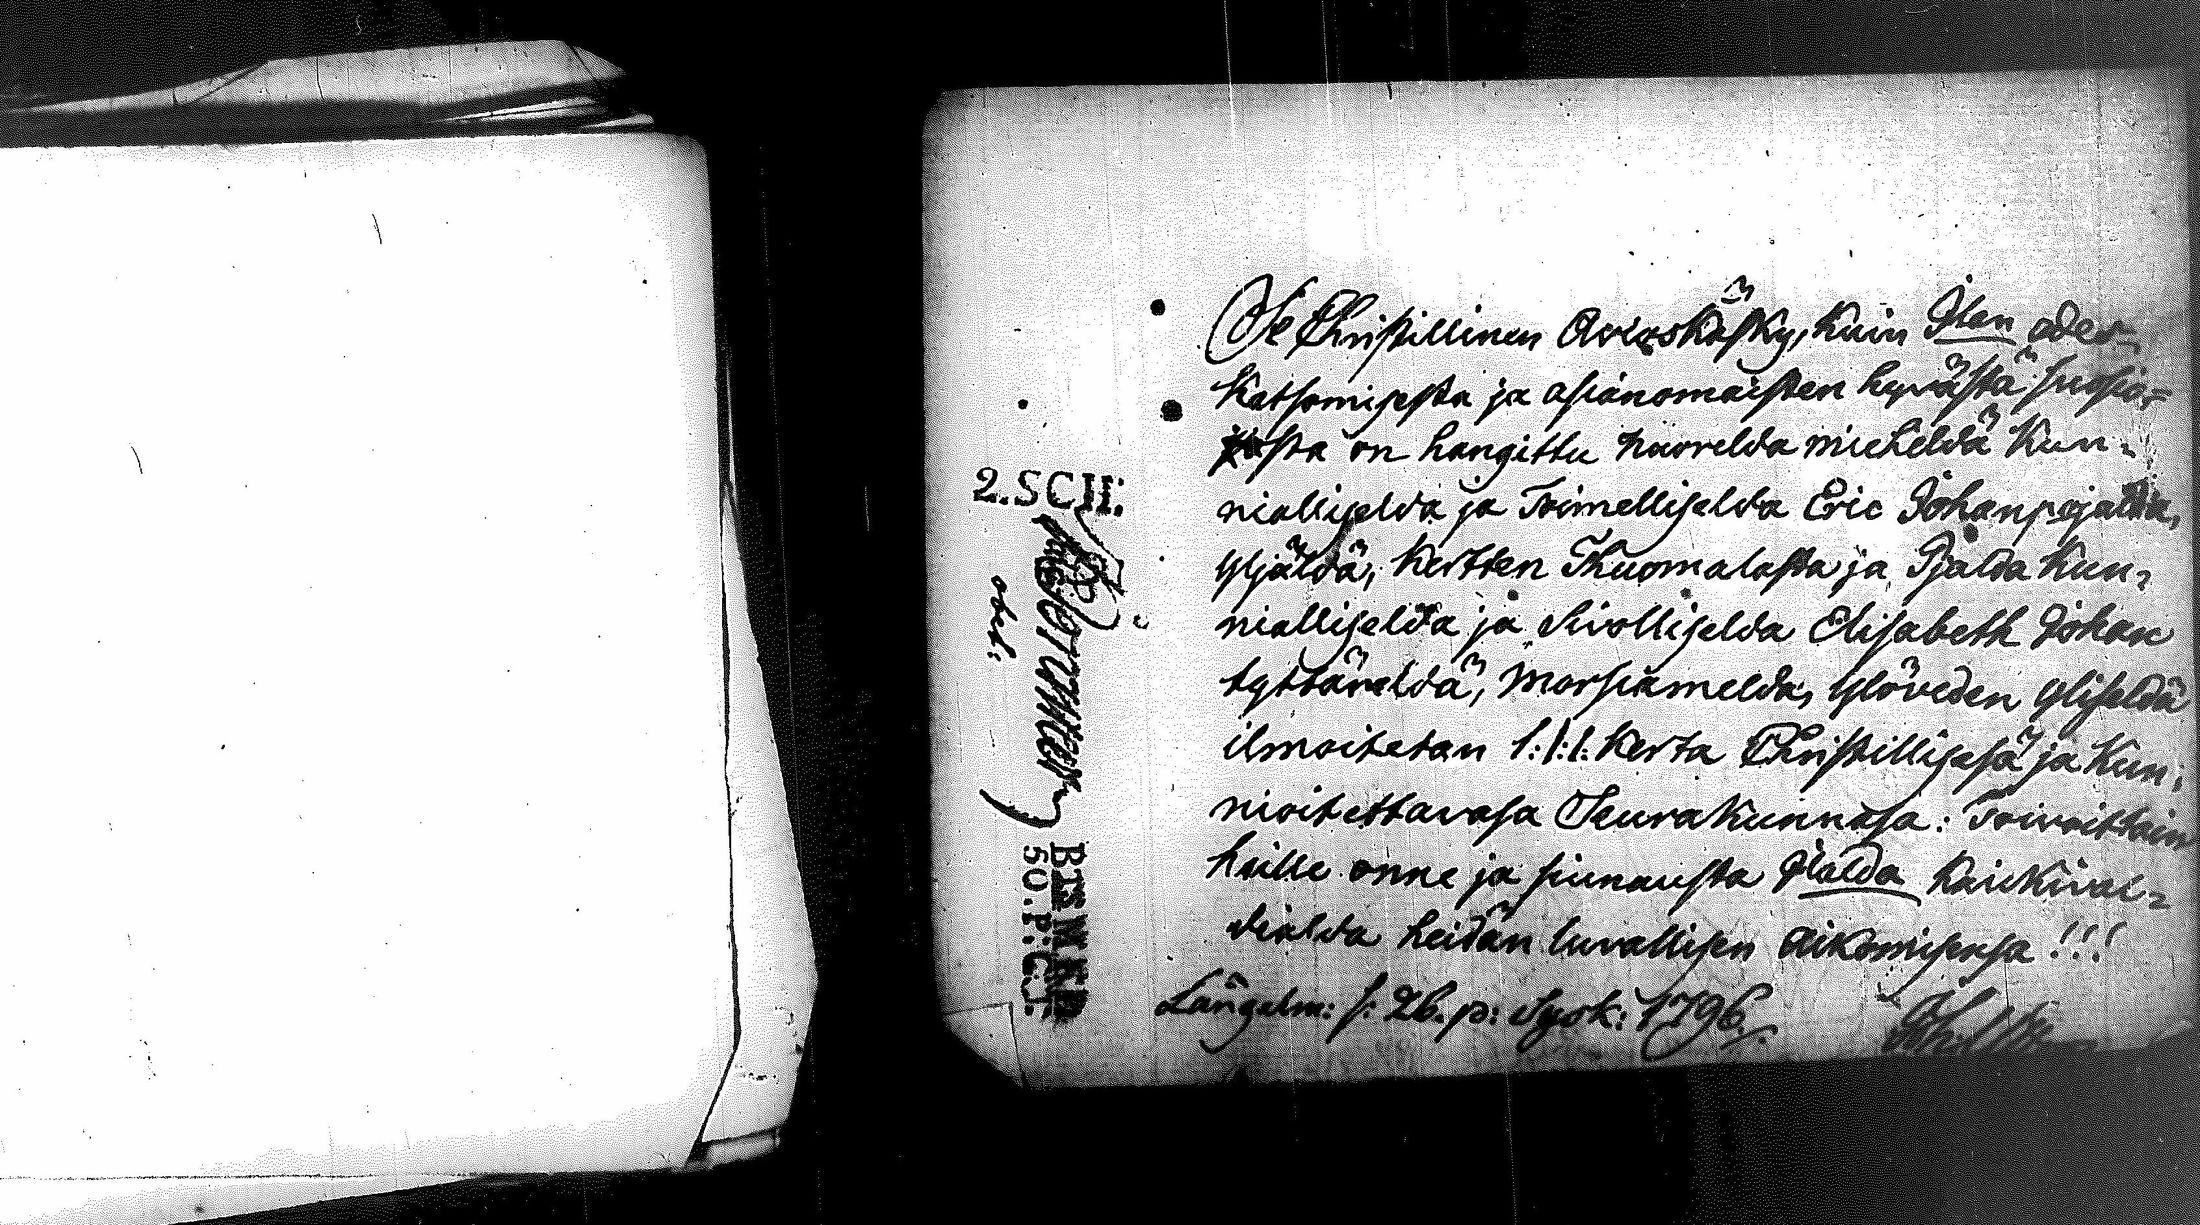 Se Christillinen Avioskäsky, kuin Ilan edes-
katsomisesta ja asianomaisten hyvästä suosio-
sta on hangittu nuorelda mieheldä Kun-
nialliselda ja Toimelliselda Eric Johanpojalda,
Yljäldä, Kertten Thuomalasta ja Pjalda Kun-
nialliselda ja Sivolliselda Elisabeth Johan
tyttäreldä, Morsiamelda, Ylöveden Yliseldä
ilmoitetan 1:1:1: kerta Christillisesä ja Kun-
nioitettavasa Seurakunnasa: Toivoittain
heille onne ja siunausta Ilalda Kaickival-
dialda heidän luvallisen aikomisensa!!!
Längelm: s: 26. p: Syok: 1796.
2.SCH:
obet:
50.P:C:I.